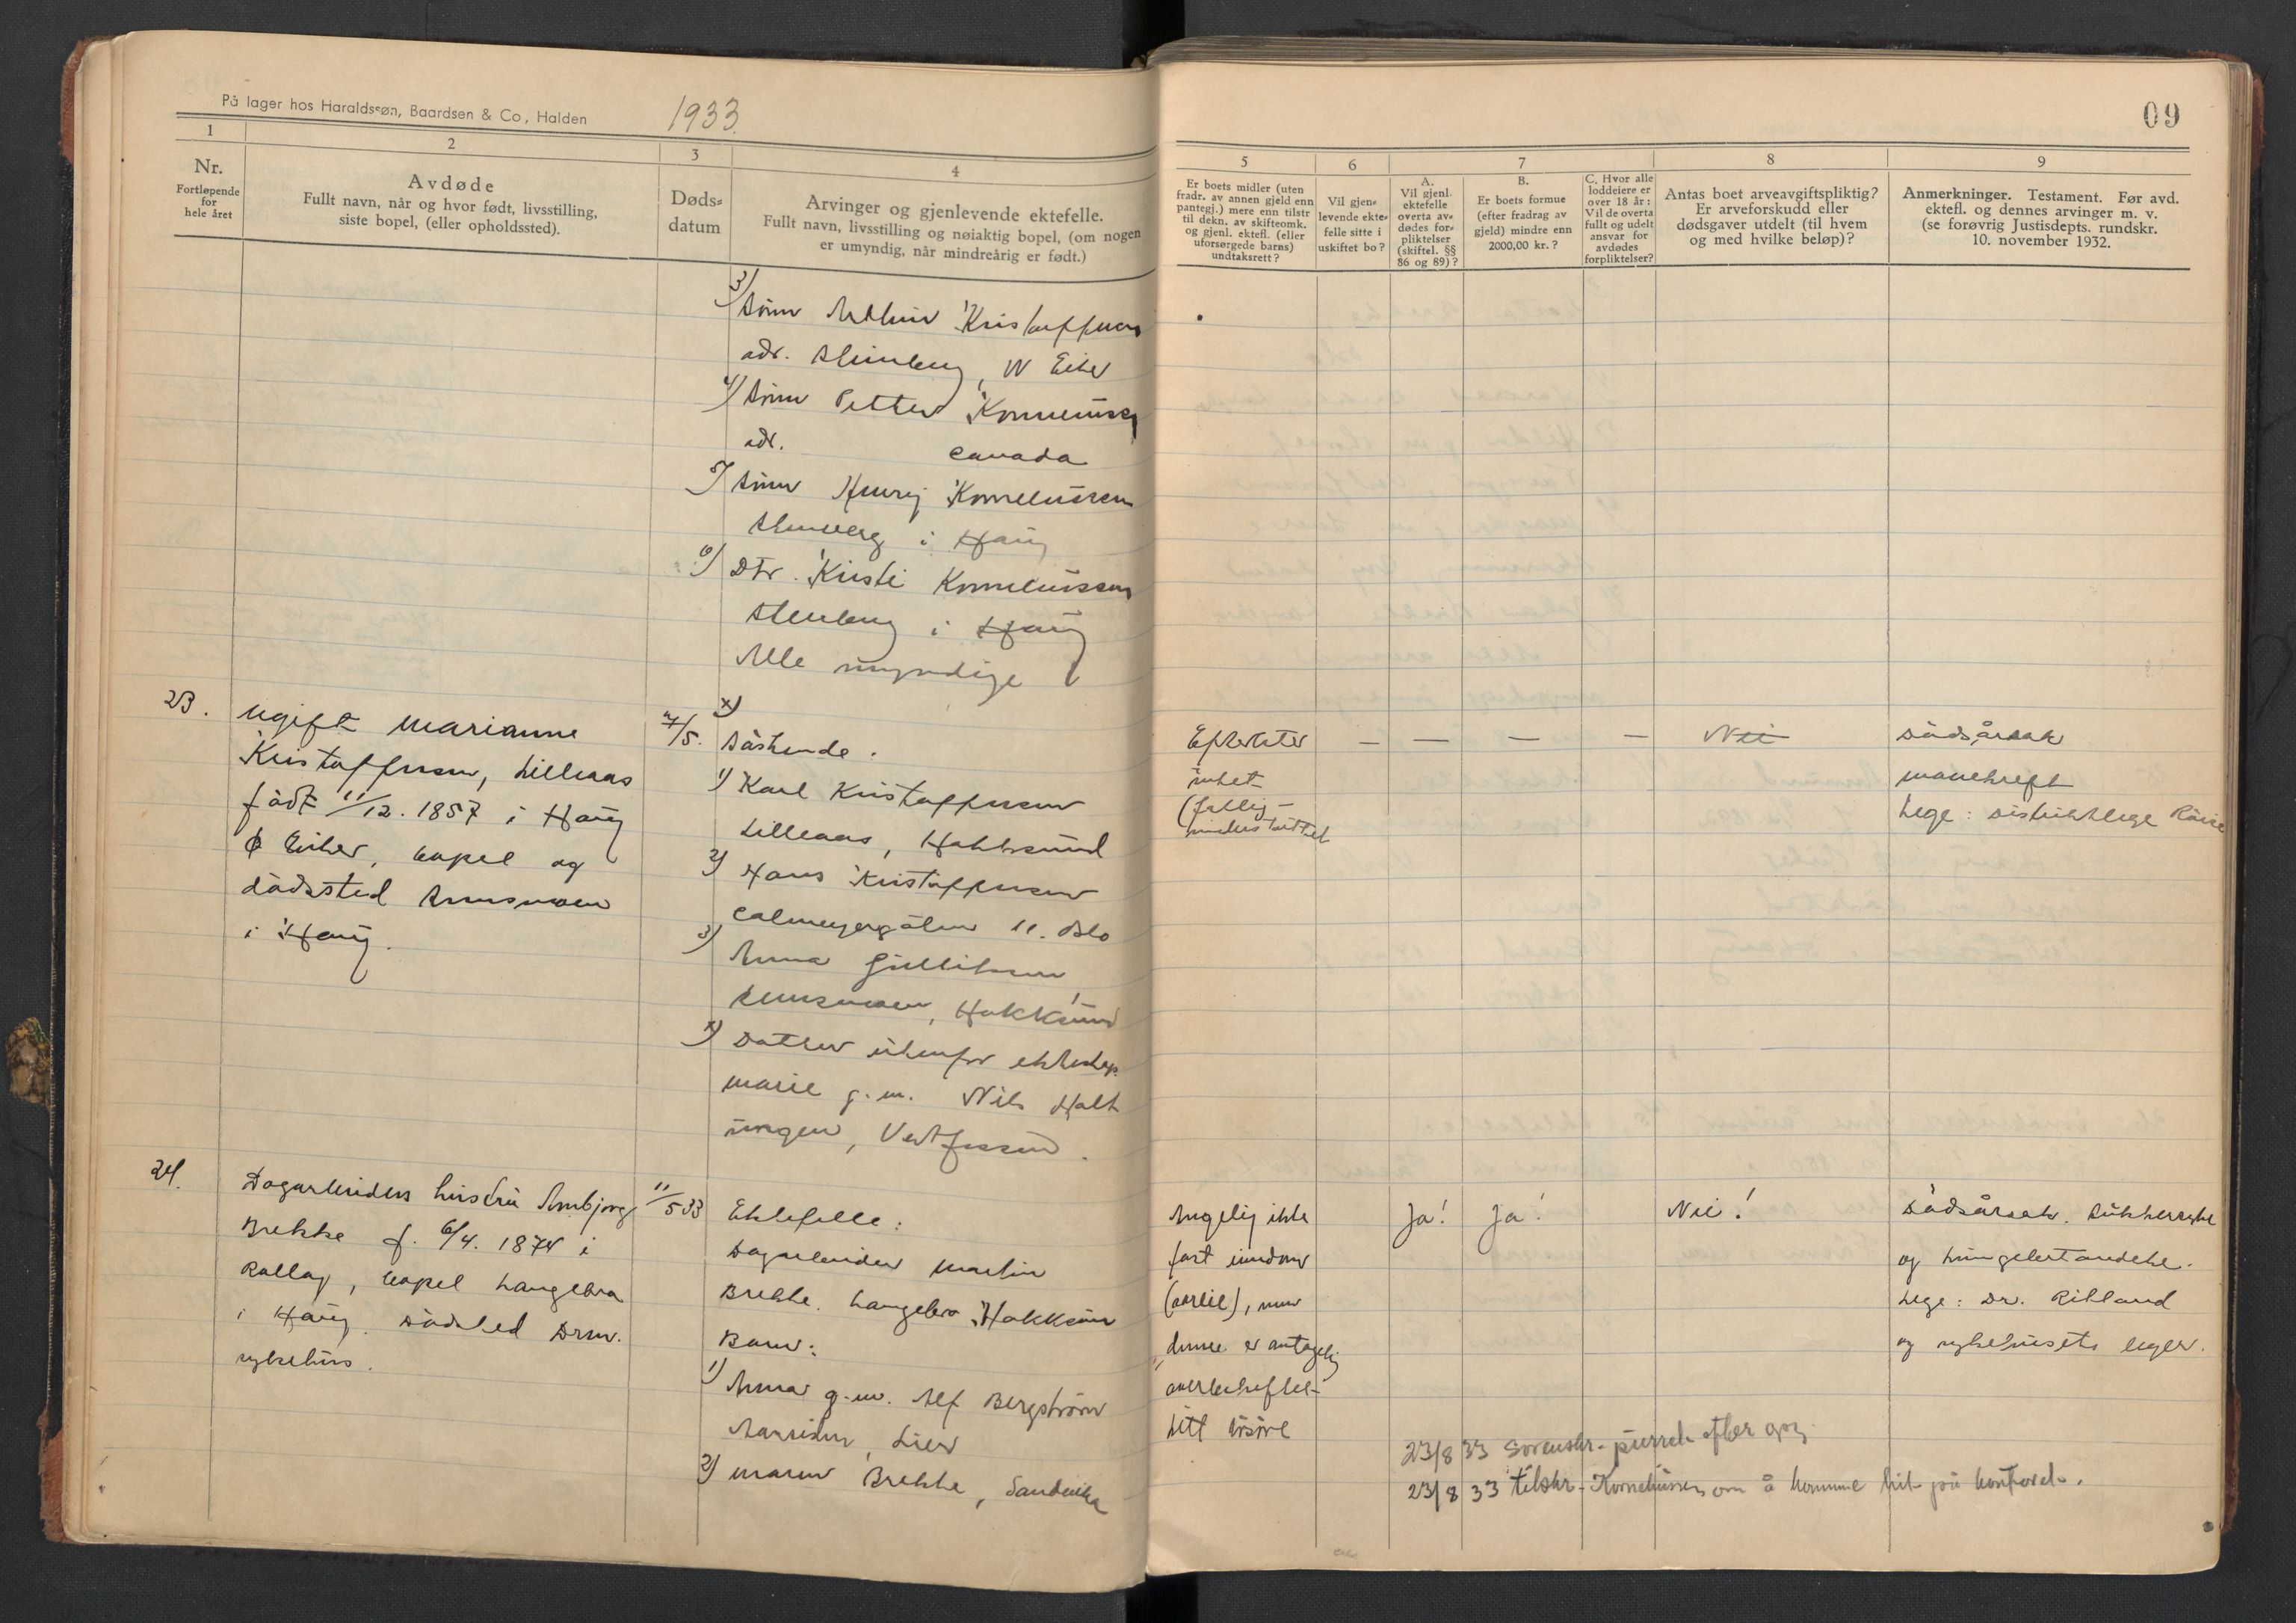 På lager hos Haraldssøn, Baardsen & Co, Halden
1933.
09
1
2
3
4
5
6
7
8
9
Nr.
Fortløpende
for
hele året
Avdøde
Fullt navn, når og hvor født, livsstilling,
siste bopel, (eller opholdssted).
Døds-
datum
Arvinger og gjenlevende ektefelle.
Fullt navn, livsstilling og nøiaktig bopel, (om nogen
er umyndig, når mindreårig er født.)
Er boets midler (uten
fradr. av annen gjeld enn
pantegj.) mere enn tilstr
til dekn. av skifteomk.
og gjenl. ektefl. (eller
uforsørgede barns)
undtaksrett?
Vil gjen-
levende ekte-
felle sitte i
uskiftet bo?
A.
Vil gjenl.
ektefelle
overta av-
dødes for-
pliktelser
(skiftel. §§
86 og 89)?
B.
Er boets formue
(efter fradrag av
gjeld) mindre enn
2000,00 kr.?
C. Hvor alle
loddeiere er
over 18 år:
Vil de overta
fullt og udelt
ansvar for
avdødes
forpliktelser?
Antas boet arveavgiftspliktig?
Er arveforskudd eller
dødsgaver utdelt (til hvem
og med hvilke beløp)?
Anmerkninger. Testament. Før avd.
ektefl. og dennes arvinger m. v.
(se forøvrig Justisdepts. rundskr.
10. november 1932.
3) Sønn Kristoffersen
adr. , N Eiker
4) Sønn Petter Korneliussen
adr. Canada
5) Sønn Henry Korneliussen
i Haug
6) Dtr. Kirsti Korneliussen
i Haug
Alle myndige
23. Ugift Marianne
Kristoffersen, Lilleaas
født 11/12. 1857 i Haug
Ø Eiker, bopel og
dødssted
i Haug.
7/5.
Søskende.
1) Karl Kristoffersen
Lilleaas, Hokksund
2) Hans Kristoffersen
Calmeyergaten 11. Oslo
3) Anna Gulliksen
, Hokksund
4) Datter utenfor ekteskap
Marie g.m. Nils Holt
ungen, Vestfossen.
Efterlater
intet
(fattig-
understøttet
— — — —
Nei
Dødsårsak
mavekreft
Lege: Distriktslege
24.
Dagarbeiders hustru Annbjørg
Brekke f. 6/4. 1874 i
Rollag, bopel Langebro
i Haug. Dødsted Drm.
sykehus.
11/5 33
Ektefelle:
Dagarbeider Martin
Brekke. Langebro, Hokksund
Barn:
1) Anna g.m. Alf Bergstrøm
, Lier
2) Maren Brekke, Sandvika
Angelig ikke
fast eiendom
(), men
denne er antagelig
overbeheftet
litt løsøre
Ja!
Ja!
Nei!
Dødsårsak. Sukkersyke
og lungebetendelse.
Lege: Dr.
og sykehusets leger.
23/8 33 Sorenskr. purret efter
23/8 33 tilskr. Korneliussen om å komme hit på kontoret.